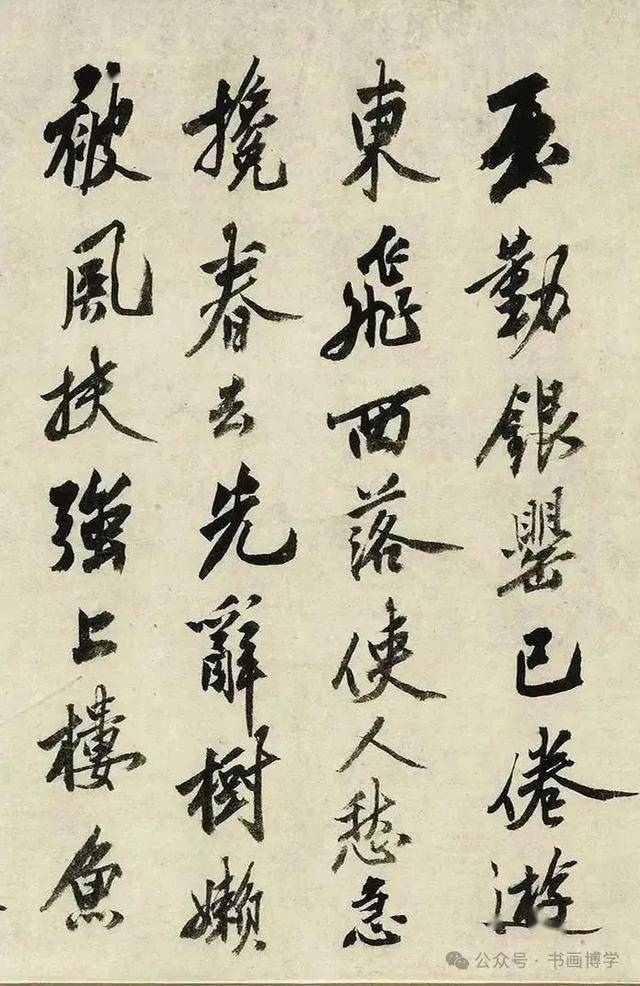 玉勒銀罌已倦遊
東飛西落使人愁急
攙春去先辭樹嬾
被風扶強上樓魚
公众号 · 书画博学